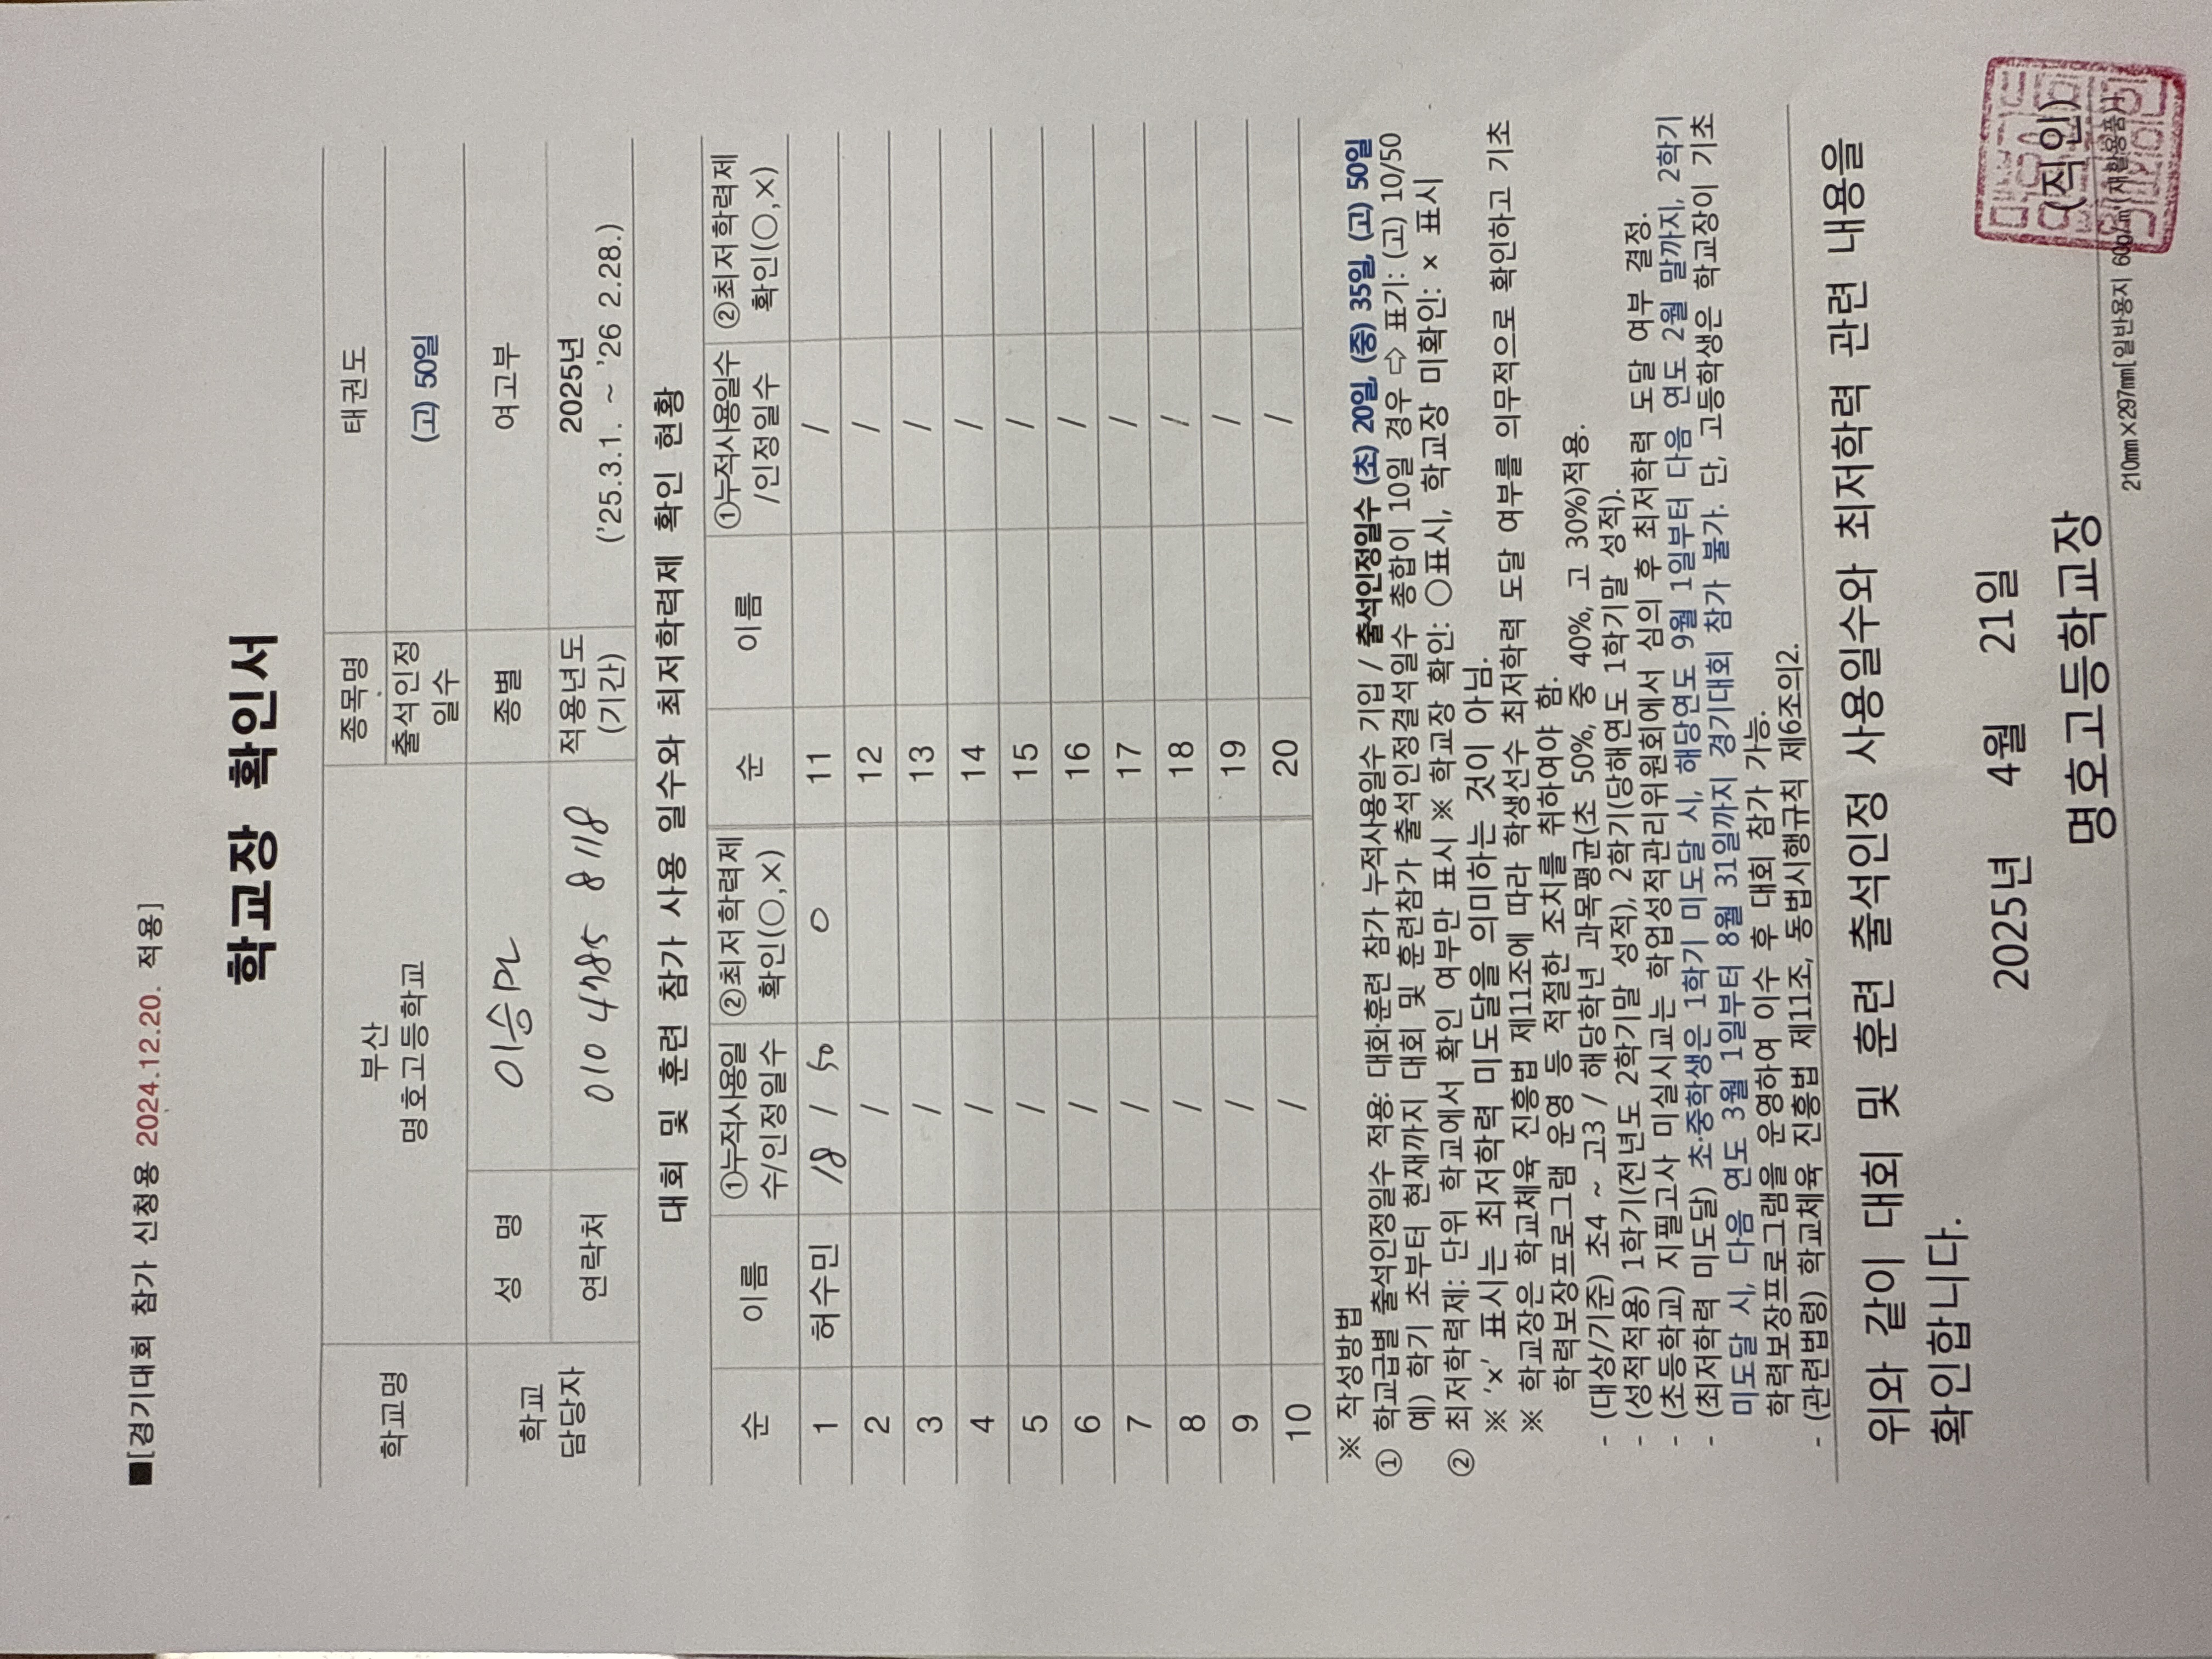 ■[경기대회 참가 신청용 2024.12.20. 적용]
학교장 확인서
학교명 부산 명호고등학교 종목명 태권도
출석인정 일수 (고) 50일
학교 담당자 성 명 종별 여고부
연락처 010 4785 8118 적용년도 (기간) 2025년 ('25.3.1. ~ '26 2.28.)
대회 및 훈련 참가 사용 일수와 최저학력제 확인 현황
순 이름 ①누적사용일수/인정일수 ②최저학력제 확인(○,×) 순 이름 ①누적사용일수/인정일수 ②최저학력제 확인(○,×)
1 허수민 18 / 50 ○ 11 /
2 / 12 /
3 / 13 /
4 / 14 /
5 / 15 /
6 / 16 /
7 / 17 /
8 / 18 /
9 / 19 /
10 / 20 /
※ 작성방법
① 학교급별 출석인정일수 적용: 대회·훈련 참가 누적사용일수 기입 / 출석인정일수 (초) 20일, (중) 35일, (고) 50일
예) 학기 초부터 현재까지 대회 및 훈련참가 출석인정결석일수 총합이 10일 경우 ⇨ 표기: (고) 10/50
② 최저학력제: 단위 학교에서 확인 여부만 표시 ※ 학교장 확인: ○표시, 학교장 미확인: × 표시
※ '×' 표시는 최저학력 미도달을 의미하는 것이 아님.
※ 학교장은 학교체육 진흥법 제11조에 따라 학생선수 최저학력 도달 여부를 의무적으로 확인하고 기초
학력보장프로그램 운영 등 적절한 조치를 취하여야 함.
- (대상/기준) 초4 ~ 고3 / 해당학년 과목평균(초 50%, 중 40%, 고 30%)적용.
- (성적적용) 1학기(전년도 2학기말 성적), 2학기(당해연도 1학기말 성적).
- (초등학교) 지필고사 미실시교는 학업성적관리위원회에서 심의 후 최저학력 도달 여부 결정.
- (최저학력 미도달) 초·중학생은 1학기 미도달 시, 해당연도 9월 1일부터 다음 연도 2월 말까지, 2학기
미도달 시, 다음 연도 3월 1일부터 8월 31일까지 경기대회 참가 불가. 단, 고등학생은 학교장이 기초
학력보장프로그램을 운영하여 이수 후 대회 참가 가능.
- (관련법령) 학교체육 진흥법 제11조, 동법시행규칙 제6조의2.
위와 같이 대회 및 훈련 출석인정 사용일수와 최저학력 관련 내용을
확인합니다.
2025년 4월 21일
명호고등학교장 (직인)
210mm×297mm[일반용지 60g/㎡(재활용품)]